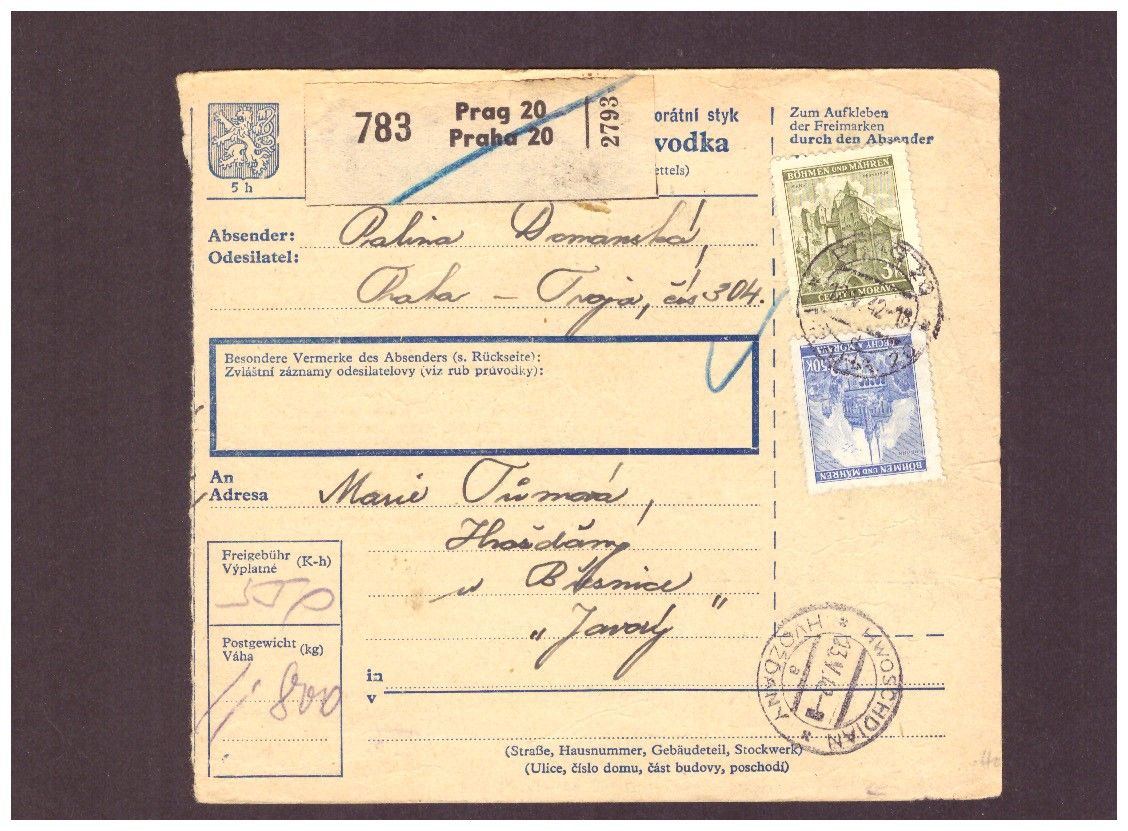 5 h
783 Prag 20
Praha 20
2793
orátní styk
vodka
ettels)
Zum Aufkleben
der Freimarken
durch den Absender
BÖHMEN UND MÄHREN
3K
ČECHY A MORAVA
Absender:
Odesilatel:
Domanská,
Praha – Troja, čís 304.
PRAG 20
42-18
PRAHA 20
ČECHY A MORAVA
50K
BÖHMEN UND MÄHREN
Besondere Vermerke des Absenders (s. Rückseite):
Zvláštní záznamy odesilatelovy (viz rub průvodky):
An
Adresa
Marie Tůmová,
Hvožďany
u Březnice
"
Freigebühr (K-h)
Výplatné
Postgewicht (kg)
Váha
1 800
in
v
HWOSCHDIAN
HVOŽĎANY
23.V.42
a
(Straße, Hausnummer, Gebäudeteil, Stockwerk)
(Ulice, číslo domu, část budovy, poschodí)